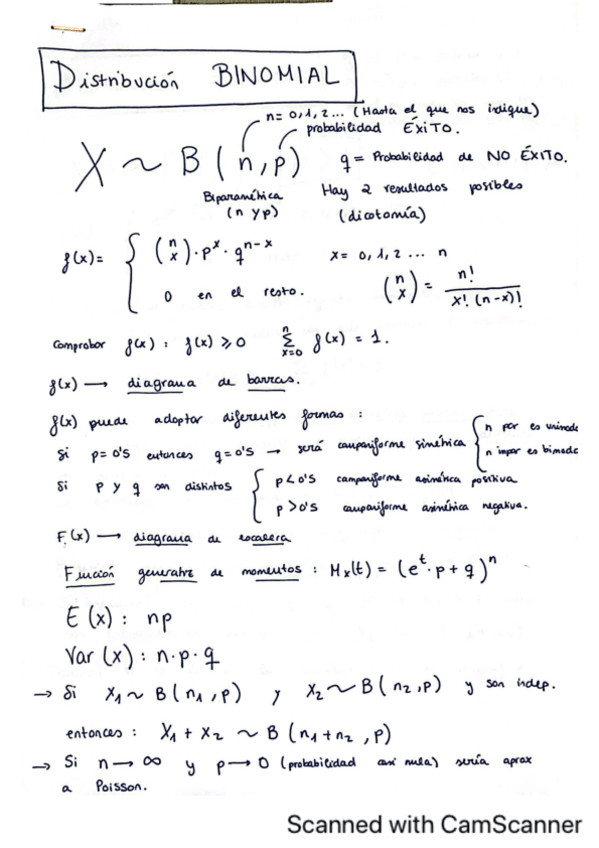 Distribución BINOMIAL
n = 0, 1, 2 ... (Hasta el que nos indique)
probabilidad ÉXITO.
X ~ B (n, p)
q = Probabilidad de NO ÉXITO.
Biparamétrica
(n y p)
Hay 2 resultados posibles
(dicotomía)
f(x) = { (n x) · p^x · q^(n-x)   x = 0, 1, 2 ... n
0 en el resto.   (n x) = n! / x! (n-x)!
Comprobar f(x) : f(x) ⩾ 0   Σ_(x=0)^n f(x) = 1.
f(x) → diagrama de barras.
f(x) puede adoptar diferentes formas :
Si p = 0'5 entonces q = 0'5 → será campaniforme simétrica { n par es unimoda
n impar es bimoda
Si p y q son distintos { p < 0'5 campaniforme asimétrica positiva
p > 0'5 campaniforme asimétrica negativa.
F(x) → diagrama de escalera
Función generatriz de momentos : Mx(t) = (e^t · p + q)^n
E (x) : np
Var (x) : n · p · q
→ Si X1 ~ B (n1, p) y X2 ~ B (n2, p) y son indep.
entonces : X1 + X2 ~ B (n1 + n2, p)
→ Si n → ∞ y p → 0 (probabilidad casi nula) sería aprox
a Poisson.
Scanned with CamScanner